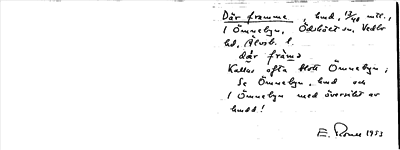 Där framme, hmd, 13/48 mtl.,
1 Ömnebyn, Ödsbölet sn, Vedbo
hd, Älvsb. l.
där främ
Kallas ofta blott Ömnebyn;
se Ömnebyn, hmd och
1 Ömnebyn med översikt av
hmdd!
E. 1953